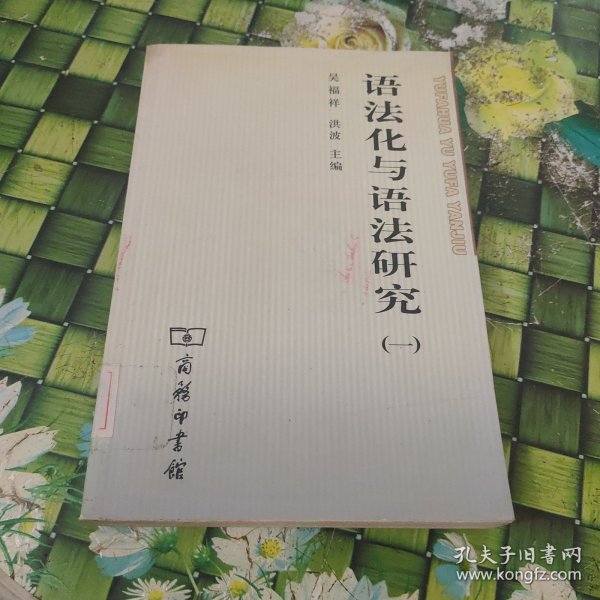 YUFAHUA YU YUFA YANJIU
语法化与语法研究(一)
吴福祥 洪波 主编
商務印書館
孔夫子旧书网
www.kongfz.com